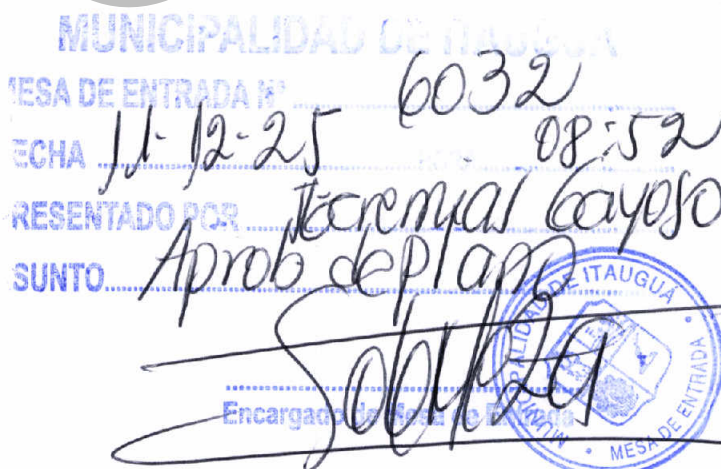 MUNICIPALIDAD DE ITAUGUÁ
MESA DE ENTRADA Nº 6032
ECHA 11-12-25 HORA 08:52
RESENTADO POR Jeremias Gayoso
SUNTO Aprob de plano
Encargado de Mesa de Entrada
MUNICIPALIDAD DE ITAUGUÁ
MESA DE ENTRADA